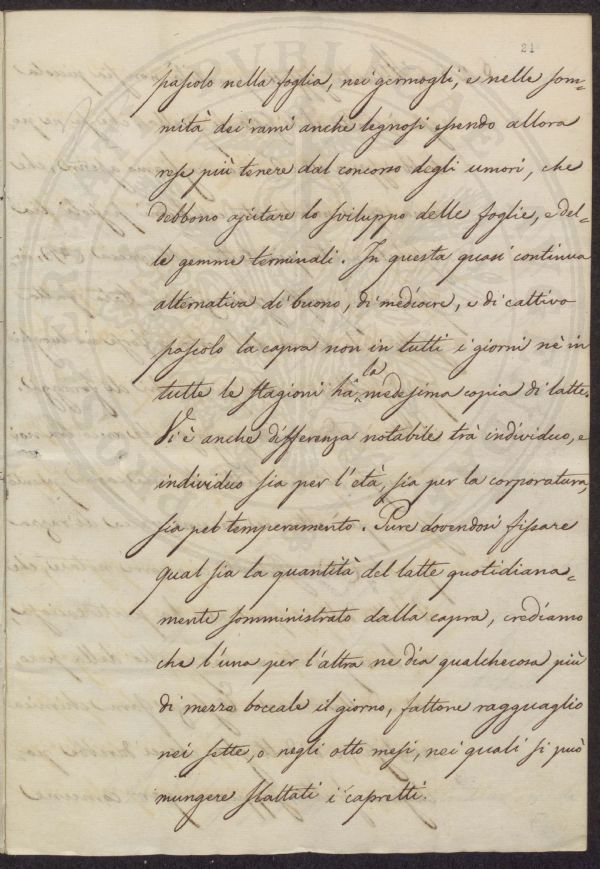 21
pascolo nella foglia, nei germogli, e nelle som=
mità dei rami anche legnosi essendo allora
rese più tenere dal concorso degli umori, che
debbono ajutare lo sviluppo delle foglie, e del=
le gemme terminali. In questa quasi continua
alternativa di buono, di mediocre, e di cattivo
pascolo la capra non in tutti i giorni nè in
tutte le stagioni hà la medesima copia di latte.
Vi è anche differenza notabile trà individuo, e
individuo sia per l'età, sia per la corporatura,
sia pel temperamento. Pure dovendosi fissare
qual sia la quantità del latte quotidiana=
mente somministrato dalla capra, crediamo
che l'una per l'altra ne dia qualchecosa più
di mezzo boccale il giorno, fattone ragguaglio
nei sette, o negli otto mesi, nei quali si può
mungere slattati i capretti.